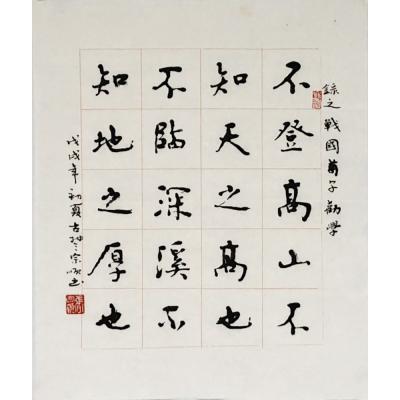 錄之戰國荀子勸學
不登高山不
知天之高也
不臨深溪不
知地之厚也
戊戌年初夏古宗书